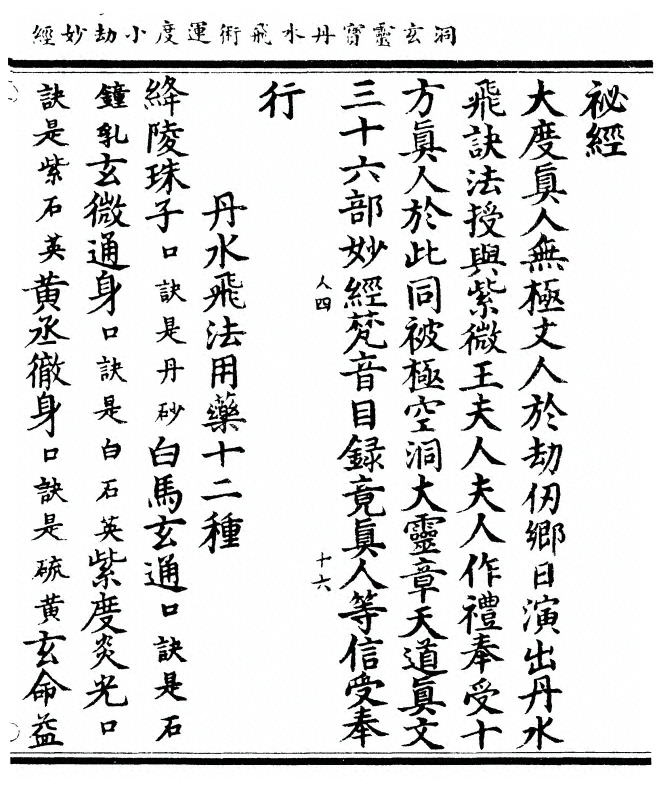 洞玄靈寶丹水飛術運度小劫妙經
祕經
大度眞人無極丈人於劫仞鄉日演出丹水
飛訣法授與紫微王夫人夫人作禮奉受十
方眞人於此同被極空洞大靈章天道眞文
三十六部妙經梵音目録竟眞人等信受奉
人四
十六
行
丹水飛法用藥十二種
絳陵珠子口訣是丹砂白馬玄通口訣是石
鐘乳玄微通身口訣是白石英紫度炎光口
訣是紫石英黃丞徹身口訣是硫黃玄命益